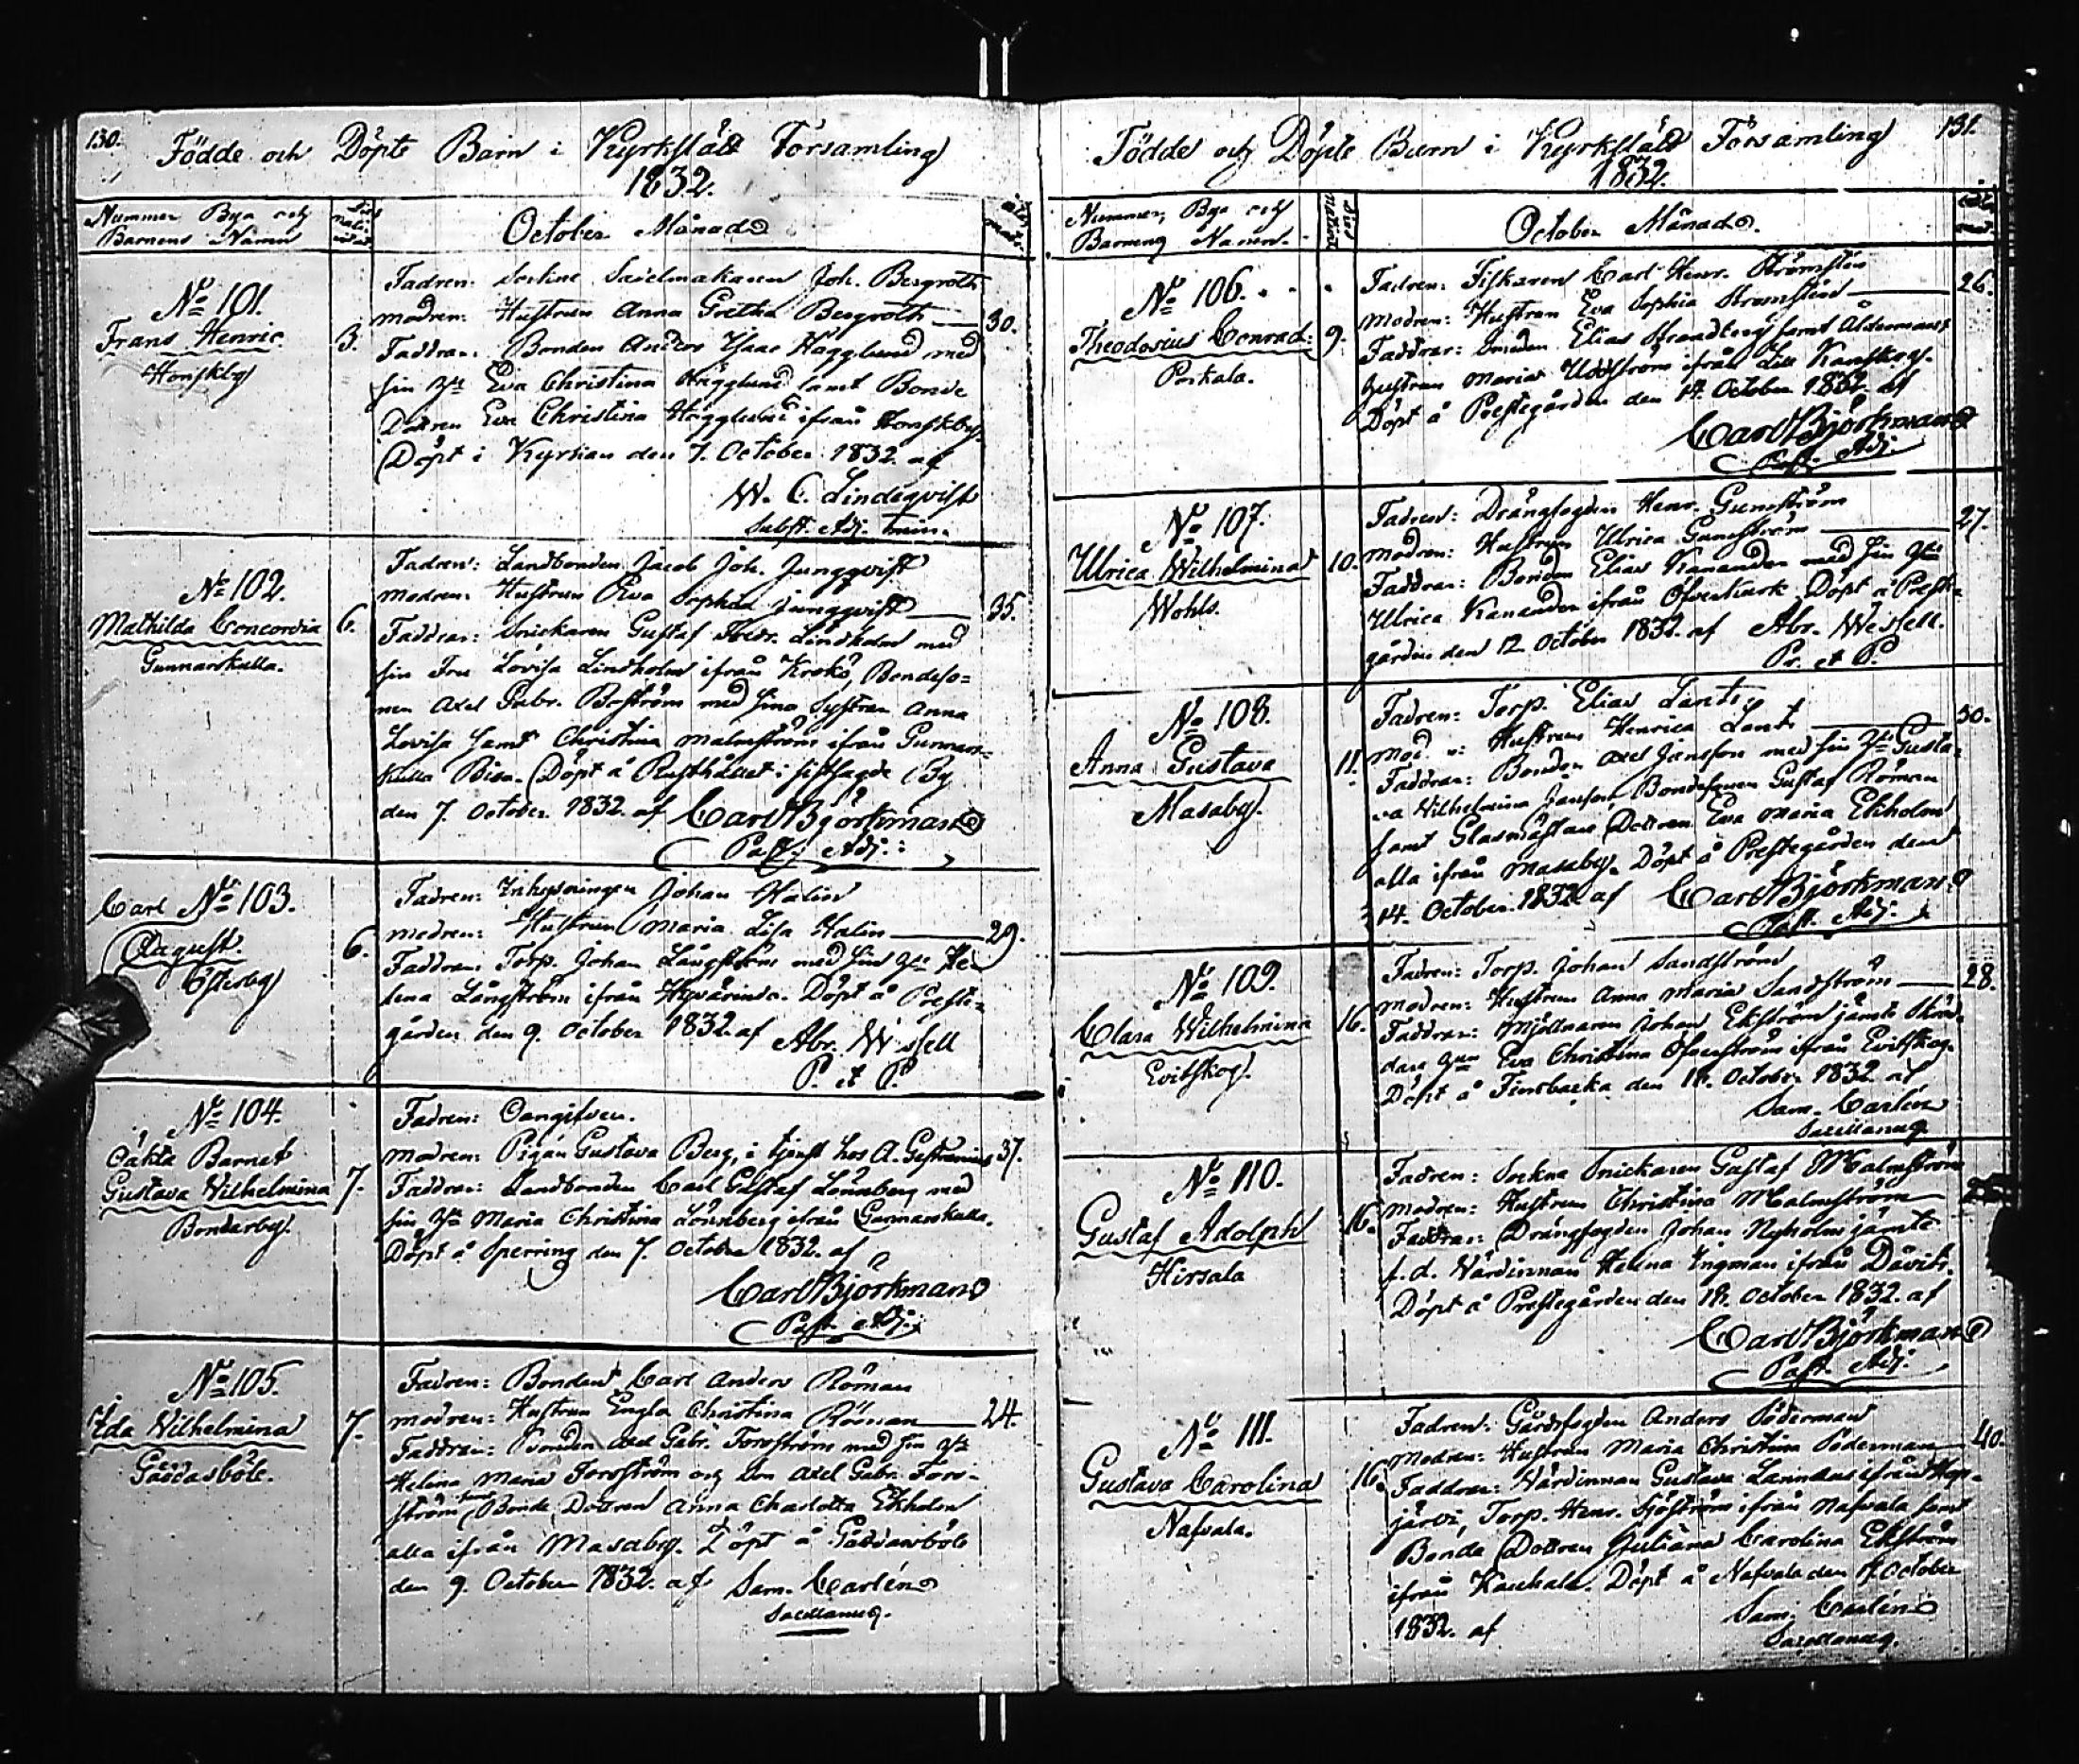 130.
Födde och Döpte Barn i Kyrkslätt Församling
1832.
Nummer Bya och
Barnens Namn
October Månad
No 101.
Frans Henric
Honskby
3.
Fadren: Sockne Sadelmakaren Joh. Bergroth
modren: Hustrun Anna Gretha Bergroth
30.
Faddrar: Bonden Anders Isaac Hägglund med
sin Hu Eva Christina Hägglund samt Bonde
Dottren Eva Christina Hägglund ifrån Honskby.
Döpt i Kyrkan den 7. October 1832. af
W. C. Lindeqvist
Subst. Adj. min.
No 102.
Mathilda Concordia
Gunnarskulla.
6.
Fadren: Landbonden Jacob Joh. Jungqvist
modren: Hustrun Eva Sophia Jungqvist
35.
Faddrar: Snickaren Gustaf Fredr. Lindholm med
sin Fru Lovisa Lindholm ifrån Krokö, Bondeso=
nen Axel Gabr. Boström med sina Systrar Anna
Lovisa samt Christina Malmström ifrån Gunnars=
kulla Döpt å Rusthållet i sistsagde By
den 7. October 1832. af Carl Björkman
Past. Adj.
No 103.
Carl
August
Österby
6.
Fadren: Inhysningen Johan Halin
modren: Hustrun Maria Lisa Halin
29.
Faddrar: Torp. Johan Långström med sin Hu He
lena Långström ifrån Hyvärinda. Döpt å Preste=
gården den 9. October 1832 af Abr. Wisell
P. et P.
No 104.
Oäkta Barnet
Gustava Wilhelmina
Bondarby.
7.
Fadren: Oangifven.
modren: Pigan Gustava Berg, i tjenst hos A. Gestranius
37.
Faddrar: Landbonden Carl Gustaf Lönnberg med
sin Hu Maria Christina Lönnberg ifrån Gunnarskulla.
Döpt å Sperring den 7. October 1832. af
Carl Björkman
Past. Adj.
No 105.
Ida Wilhelmina
Gäddarböle.
7.
Fadren: Bonden Carl Anders Röman
modren: Hustrun Engla Christina Röman
24.
Faddrar: Bonden Axel Gabr. Forsström med sin Hu
Helena Maria Forsström och Son Axel Gabr. Fors=
ström samt Bonde Dottren Anna Charlotta Ekholm
alla ifrån Masaby. Döpt å Gäddarböle
den 9. October 1832. af Sam. Carlén
Sacellanus.
131.
Födde och Döpte Barn i Kyrkslätt Församling
1832.
Nummer, Bya och
Barnens Namn.
October Månad.
No 106.
Theodosius Conrad:
Porkala.
9.
Fadren: Fiskaren Carl Henr. Strömsten
Modren: Hustrun Eva Sophia Strömsten
26.
Faddrar: Smeden Elias Strandberg samt Åldermans
hustrun Maria Uddström ifrån Lill Kanskog.
Döpt å Prestegården den 14. October 1832 af
Carl Björkman
Past. Adj.
No 107.
Ulrica Wilhelmina
Wohls.
10.
Fadren: Drängfogden Henr. Gunström
modren: Hustrun Ulrica Gunström
27.
Faddrar: Bonden Elias Kanander med sin Hu
Ulrica Kanander ifrån Öfverkurk. Döpt å Preste=
gården den 12. October 1832. af Abr. Wissell.
Pr. et P.
No 108.
Anna Gustava
Masaby.
11.
Fadren: Torp. Elias Lant
Mod n: Hustrun Henrica Lant
30.
Faddrar: Bonden Axel Jansson med sin Hu Gusta=
va Wilhelmina Janson, Bondesonen Gustaf Röman
samt Glasmästare Dottren Eva Maria Ekholm
alla ifrån Masaby. Döpt å Prestegården den
14. October 1832 af Carl Björkman
Past. Adj.
No 109.
Clara Wilhelmina
Evitskog.
16.
Fadren: Torp. Johan Sandström
modren: Hustrun Anna Maria Sandström
28.
Faddrar: Mjölnaren Johan Ekström jämte Skräd=
dare Hun Eva Christina Öfverström ifrån Evitskog.
Döpt å Finsbacka den 18. October 1832 af
Sam. Carlén
Sacellanus.
No 110.
Gustaf Adolph
Hirsala
16.
Fadren: Sockne Snickaren Gustaf Malmström
modren: Hustrun Christina Malmström
Faddrar: Drängfogden Johan Nyholm jämte
f.d. Värdinnan Helena Ingman ifrån Davits.
Döpt å Prestegården den 18. October 1832. af
Carl Björkman
Past. Adj.
No 111.
Gustava Carolina
Nafvala.
16.
Fadren: Gårdsfogden Anders Söderman
Modren: Hustrun Maria Christina Söderman
40.
Faddrar: Värdinnan Gustava Larindus ifrån Hap=
järvi, Torp. Henr. Sjöström ifrån Nafvala samt
Bonde Dottren Juliana Carolina Ekström
ifrån Kauhala. Döpt å Nafvala den 17 October
1832. af
Sam. Carlén
Sacellanus.